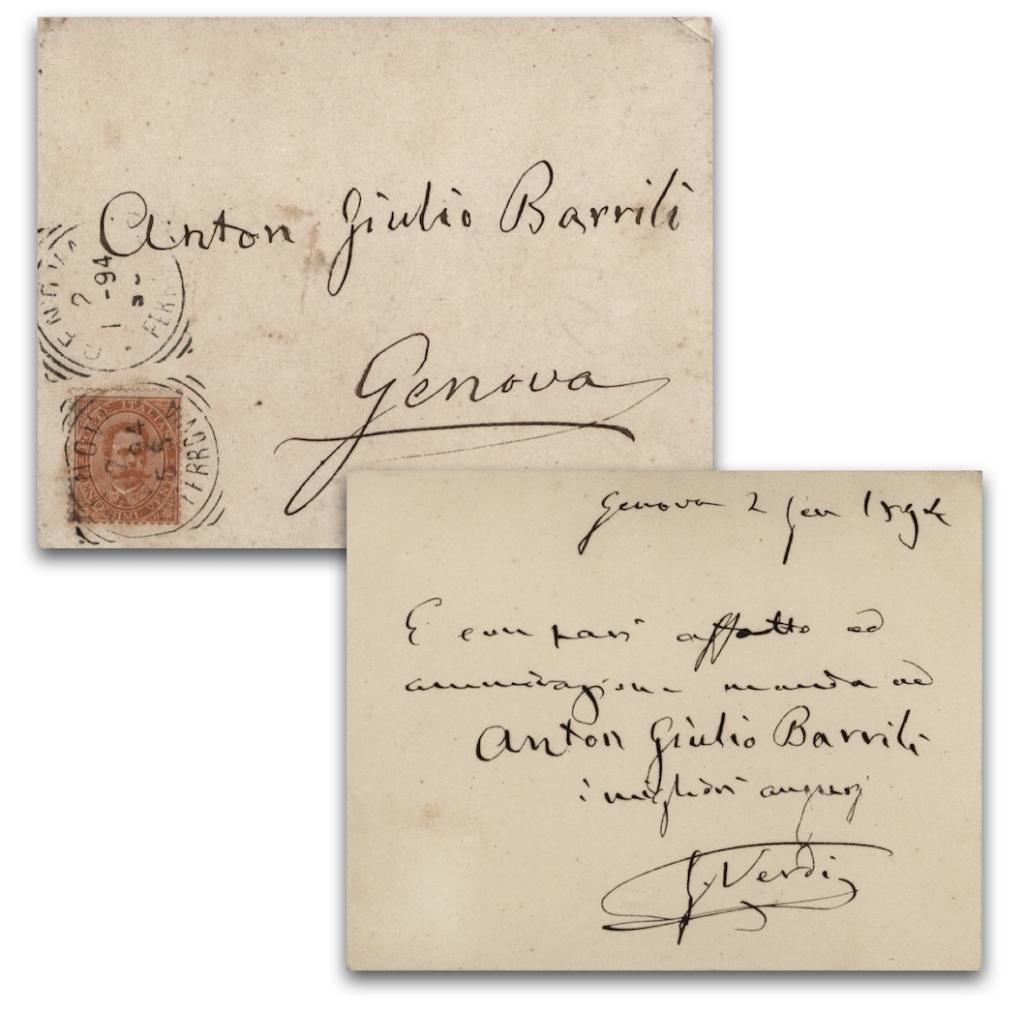 Anton Giulio Barrili
GENOVA
2
1 -94
FERR
Genova
POSTE ITALIANE
FERROVIA
Genova 2 Gen 1894
E con pari affetto ed
ammirazione manda ad
Anton Giulio Barrili
i migliori augurj
G. Verdi